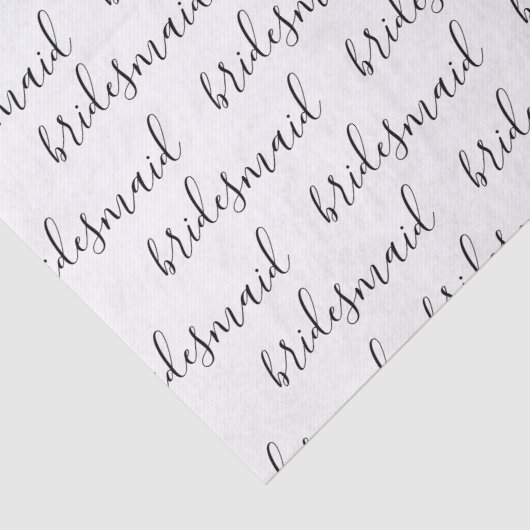 maid
bridesmaid
brides
bridesmaid
bridesmaid
desmaid
bridesmaid
brid
desmaid
bridesmaid